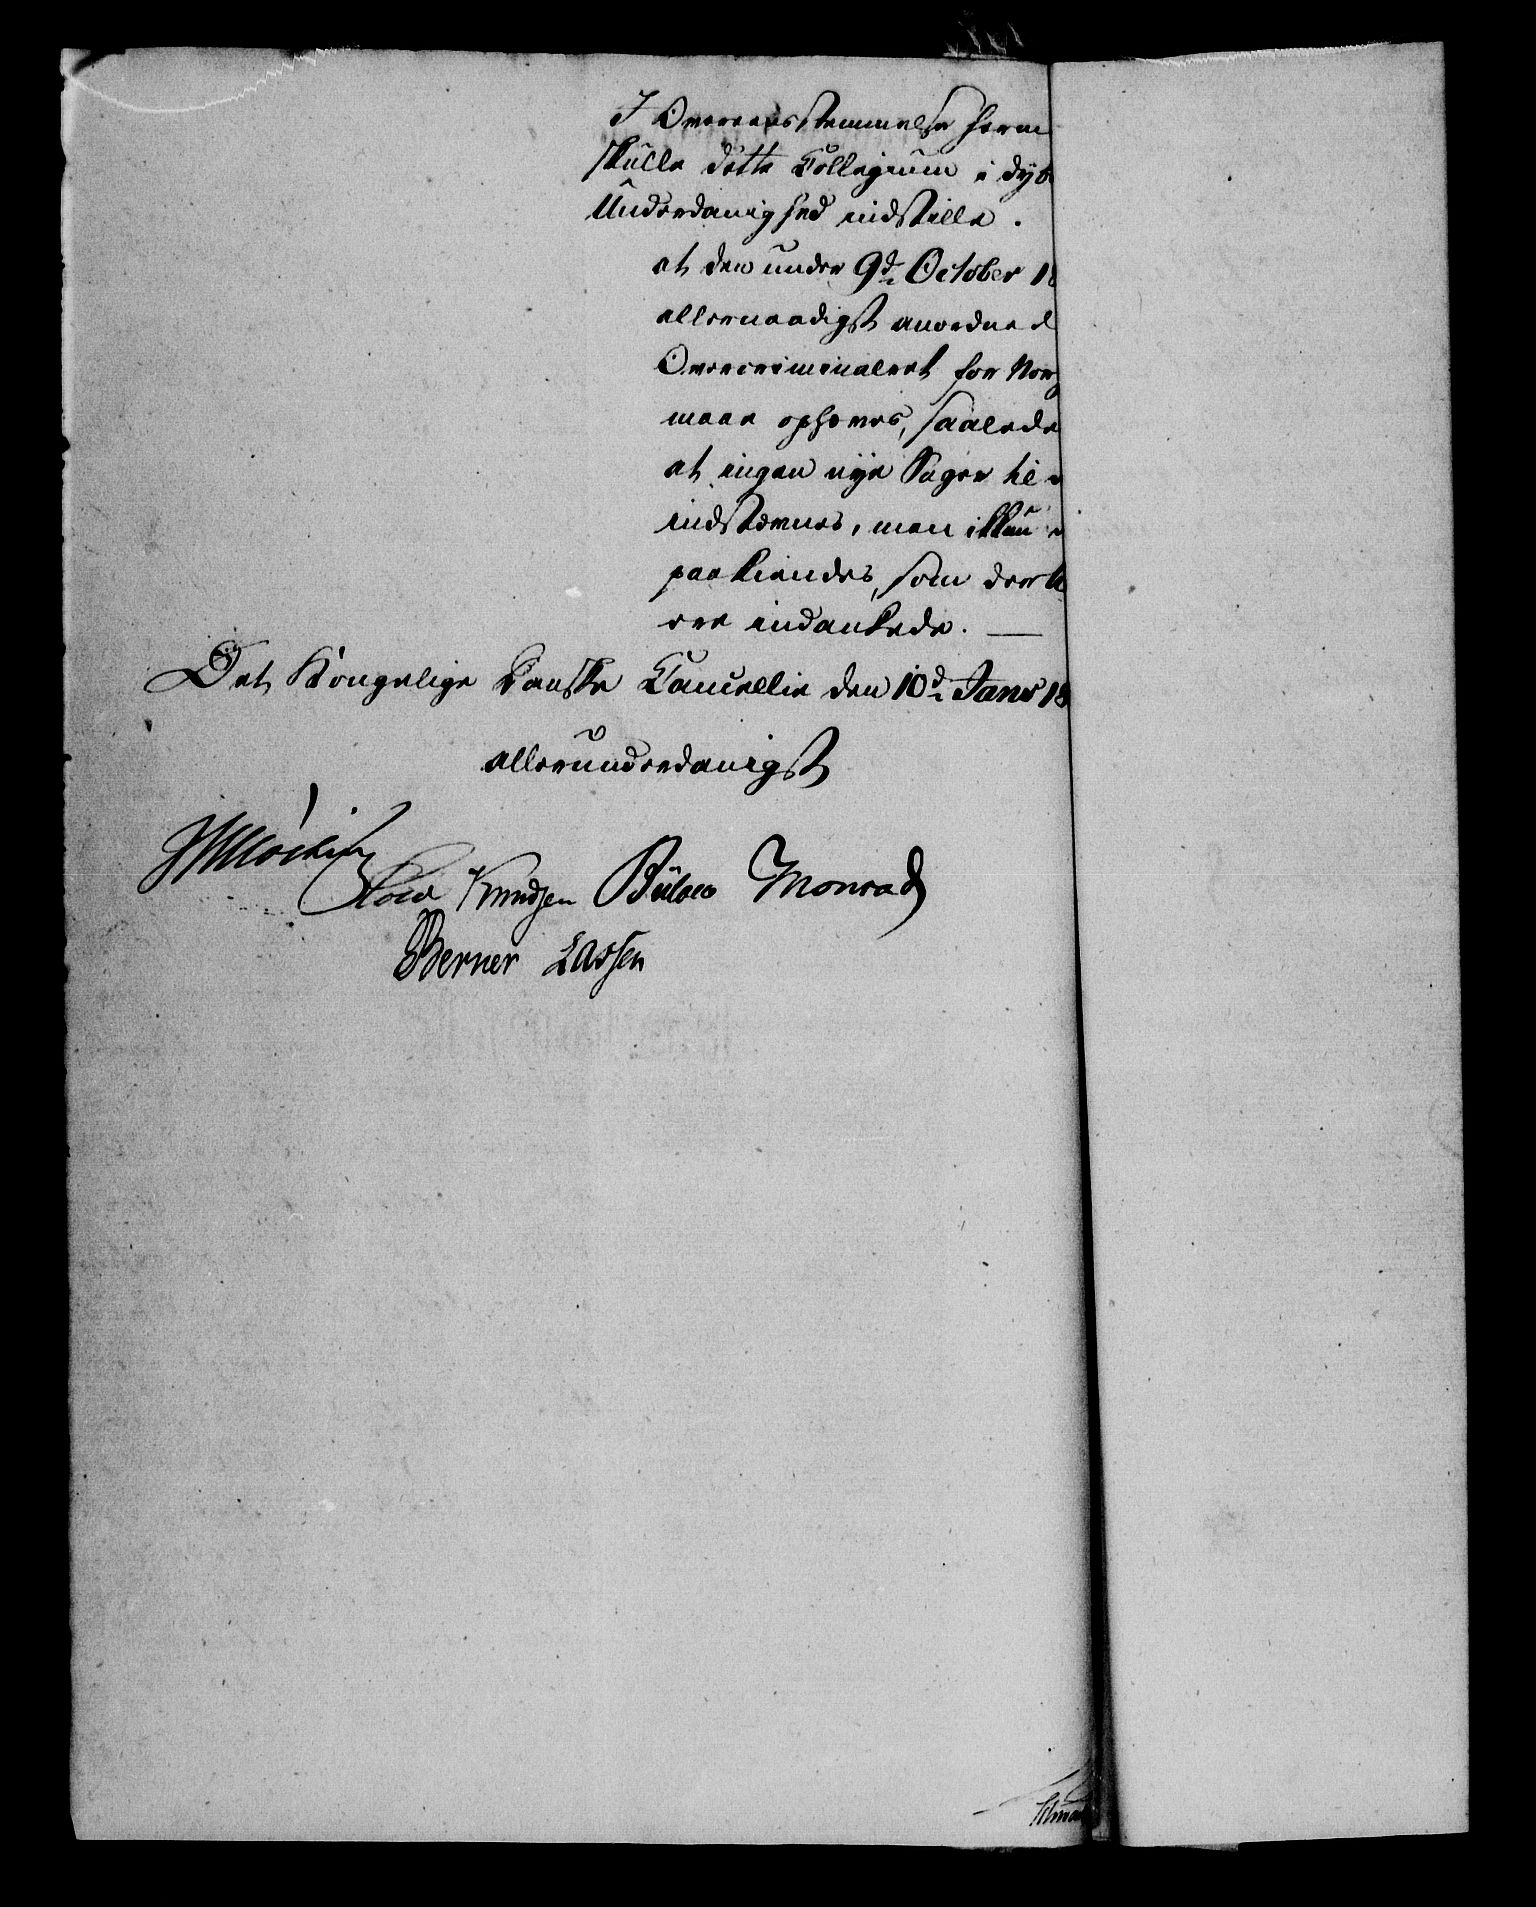 I Overeensstemmelse herm
skulle dette Collegium i dyb
Underdanighed indstille.
at den under 9d. October 18
allernaadigst anordned
Overcriminalret for Norg
maae ophæves, saalede
at ingen nye Sager til
indstævnes, men ikkun
paakiendes, som dert
ere indankede. —
Det Kongelige Danske Cancellie den 10d. Janr 18
allerunderdanigst
Knudsen Bülow Monrad
Berner Lassen